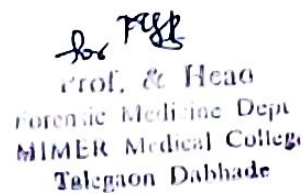 for
Prof. & Head
Forensic Medicine Dept
MIMER Medical College
Talegaon Dabhade